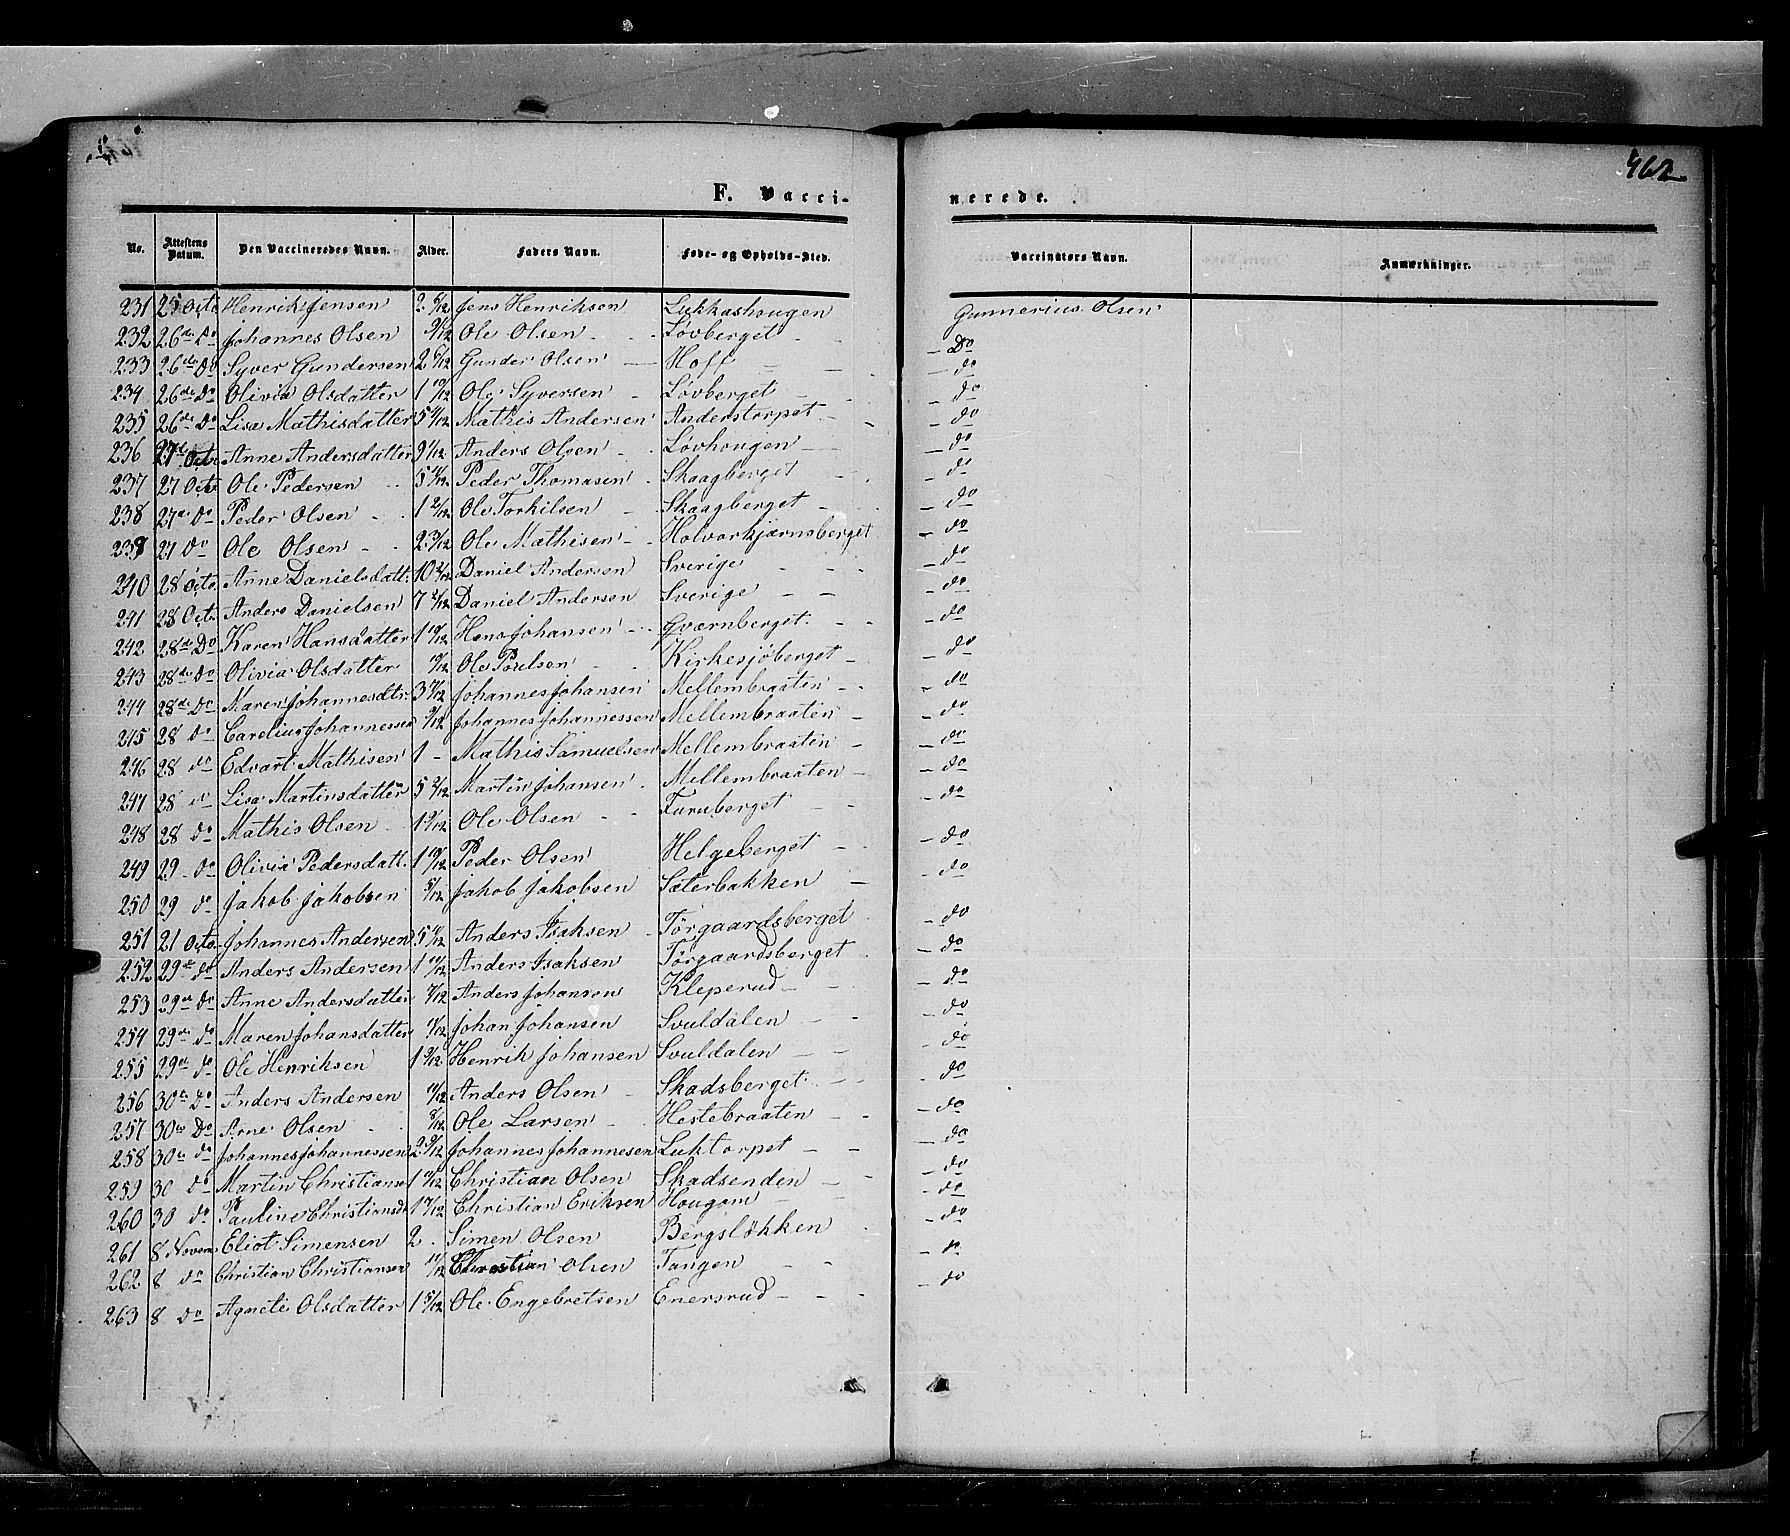 462
F. Vacci- nerede.
No. Attestens Datum. Den Vaccineredes Navn. Alder. Faders Navn. Føde- og Opholds-Sted. Vaccinators Navn. Anmærkninger.
231 25 Octo Henrik Jensen 2 6/12 Jens Henriksen Lukkashougen Gunnerius Olsen
232 26de Do Johannes Olsen 9/12 Ole Olsen Løvberget - Do
233 26de Do Syver Gundersen 2 6/12 Gunder Olsen Hoff - do
234 26de Do Olivia Olsdatter 1 10/12 Ole Syversen Løvberget - do
235 26de Do Lisa Mathisdatter 5 4/12 Mathis Andersen Anderstorpet - do
236 27de Octo Anne Andersdatter 9/12 Anders Olsen Løvhougen - do
237 27 Octo Ole Pedersen 5 Peder Thomasen Skaagberget - do
238 27de Do Peder Olsen 1 2/12 Ole Torkilsen Skaagberget - do
239 27 Do Ole Olsen 2 3/12 Ole Mathisen Holvorkjærnsberget - do
240 28 Octo. Anne Danielsdatt. 10 2/12 Daniel Andersen Sverige - do
241 28 Oct. Anders Danielsen 7 2/12 Daniel Andersen Sverige - do
242 28de Do Karen Hansdatter 1 10/12 Hans Johansen Qværnberget - do
243 28de Do Olivia Olsdatter 10/12 Ole Poulsen Kirkesjøberget - do
244 28de Do Maren Johannesdtr 3 Johannes Johansen Mellembraaten - do
245 28 do Carelius Johannessen 9/12 Johannes Johannessen Mellembraaten - do
246 28 do Edvart Mathisen 1 - Mathis Samuelsen Mellembraaten - do
247 28 do Lisa Martinsdatter 5 2/12 Martin Johansen Mellembraaten - do
248 28 do Mathis Olsen 1 9/12 Ole Olsen Furuberget - do
249 29 do Olivia Pedersdatt. 1 10/12 Peder Olsen Helgeberget - do
250 29 do Jakob Jakobsen 5/12 Jakob Jakobsen Sæterbakken - do
251 21 Octo. Johannes Andersen 5 Anders Isaksen Törgaardsberget - do
252 29de do Anders Andersen 1 11/12 Anders Isaksen Törgaardsberget - do
253 29de do Anne Andersdatter Anders Johansen Kleperud - do
254 29de do Maren Johansdatter Johan Johansen Svuldalen - do
255 29de do Ole Henriksen 1 9/12 Henrik Johansen Svuldalen - do
256 30de Do Anders Andersen 11/12 Anders Olsen Skadsberget - do
257 30de Do Arne Olsen 8/12 Ole Larsen Hestebraaten - do
258 30de do Johannes Johannessen 2 9/12 Johannes Johannesen Luktorpet - do
259 30 do Martin Christians 1 10/12 Christian Olsen Skadsenden - do
260 30 do Pauline Christiansd 1 7/12 Christian Eriksen Hougom - do
261 8 Novem Eliot Simensen 2 Simen Olsen Bergsløkken - do
262 8 do Christian Christiansen 11/12 Christian Olsen Tangen - do
263 8 do Agnete Olsdatter 1 5/12 Ole Engebretsen Enersrud - do